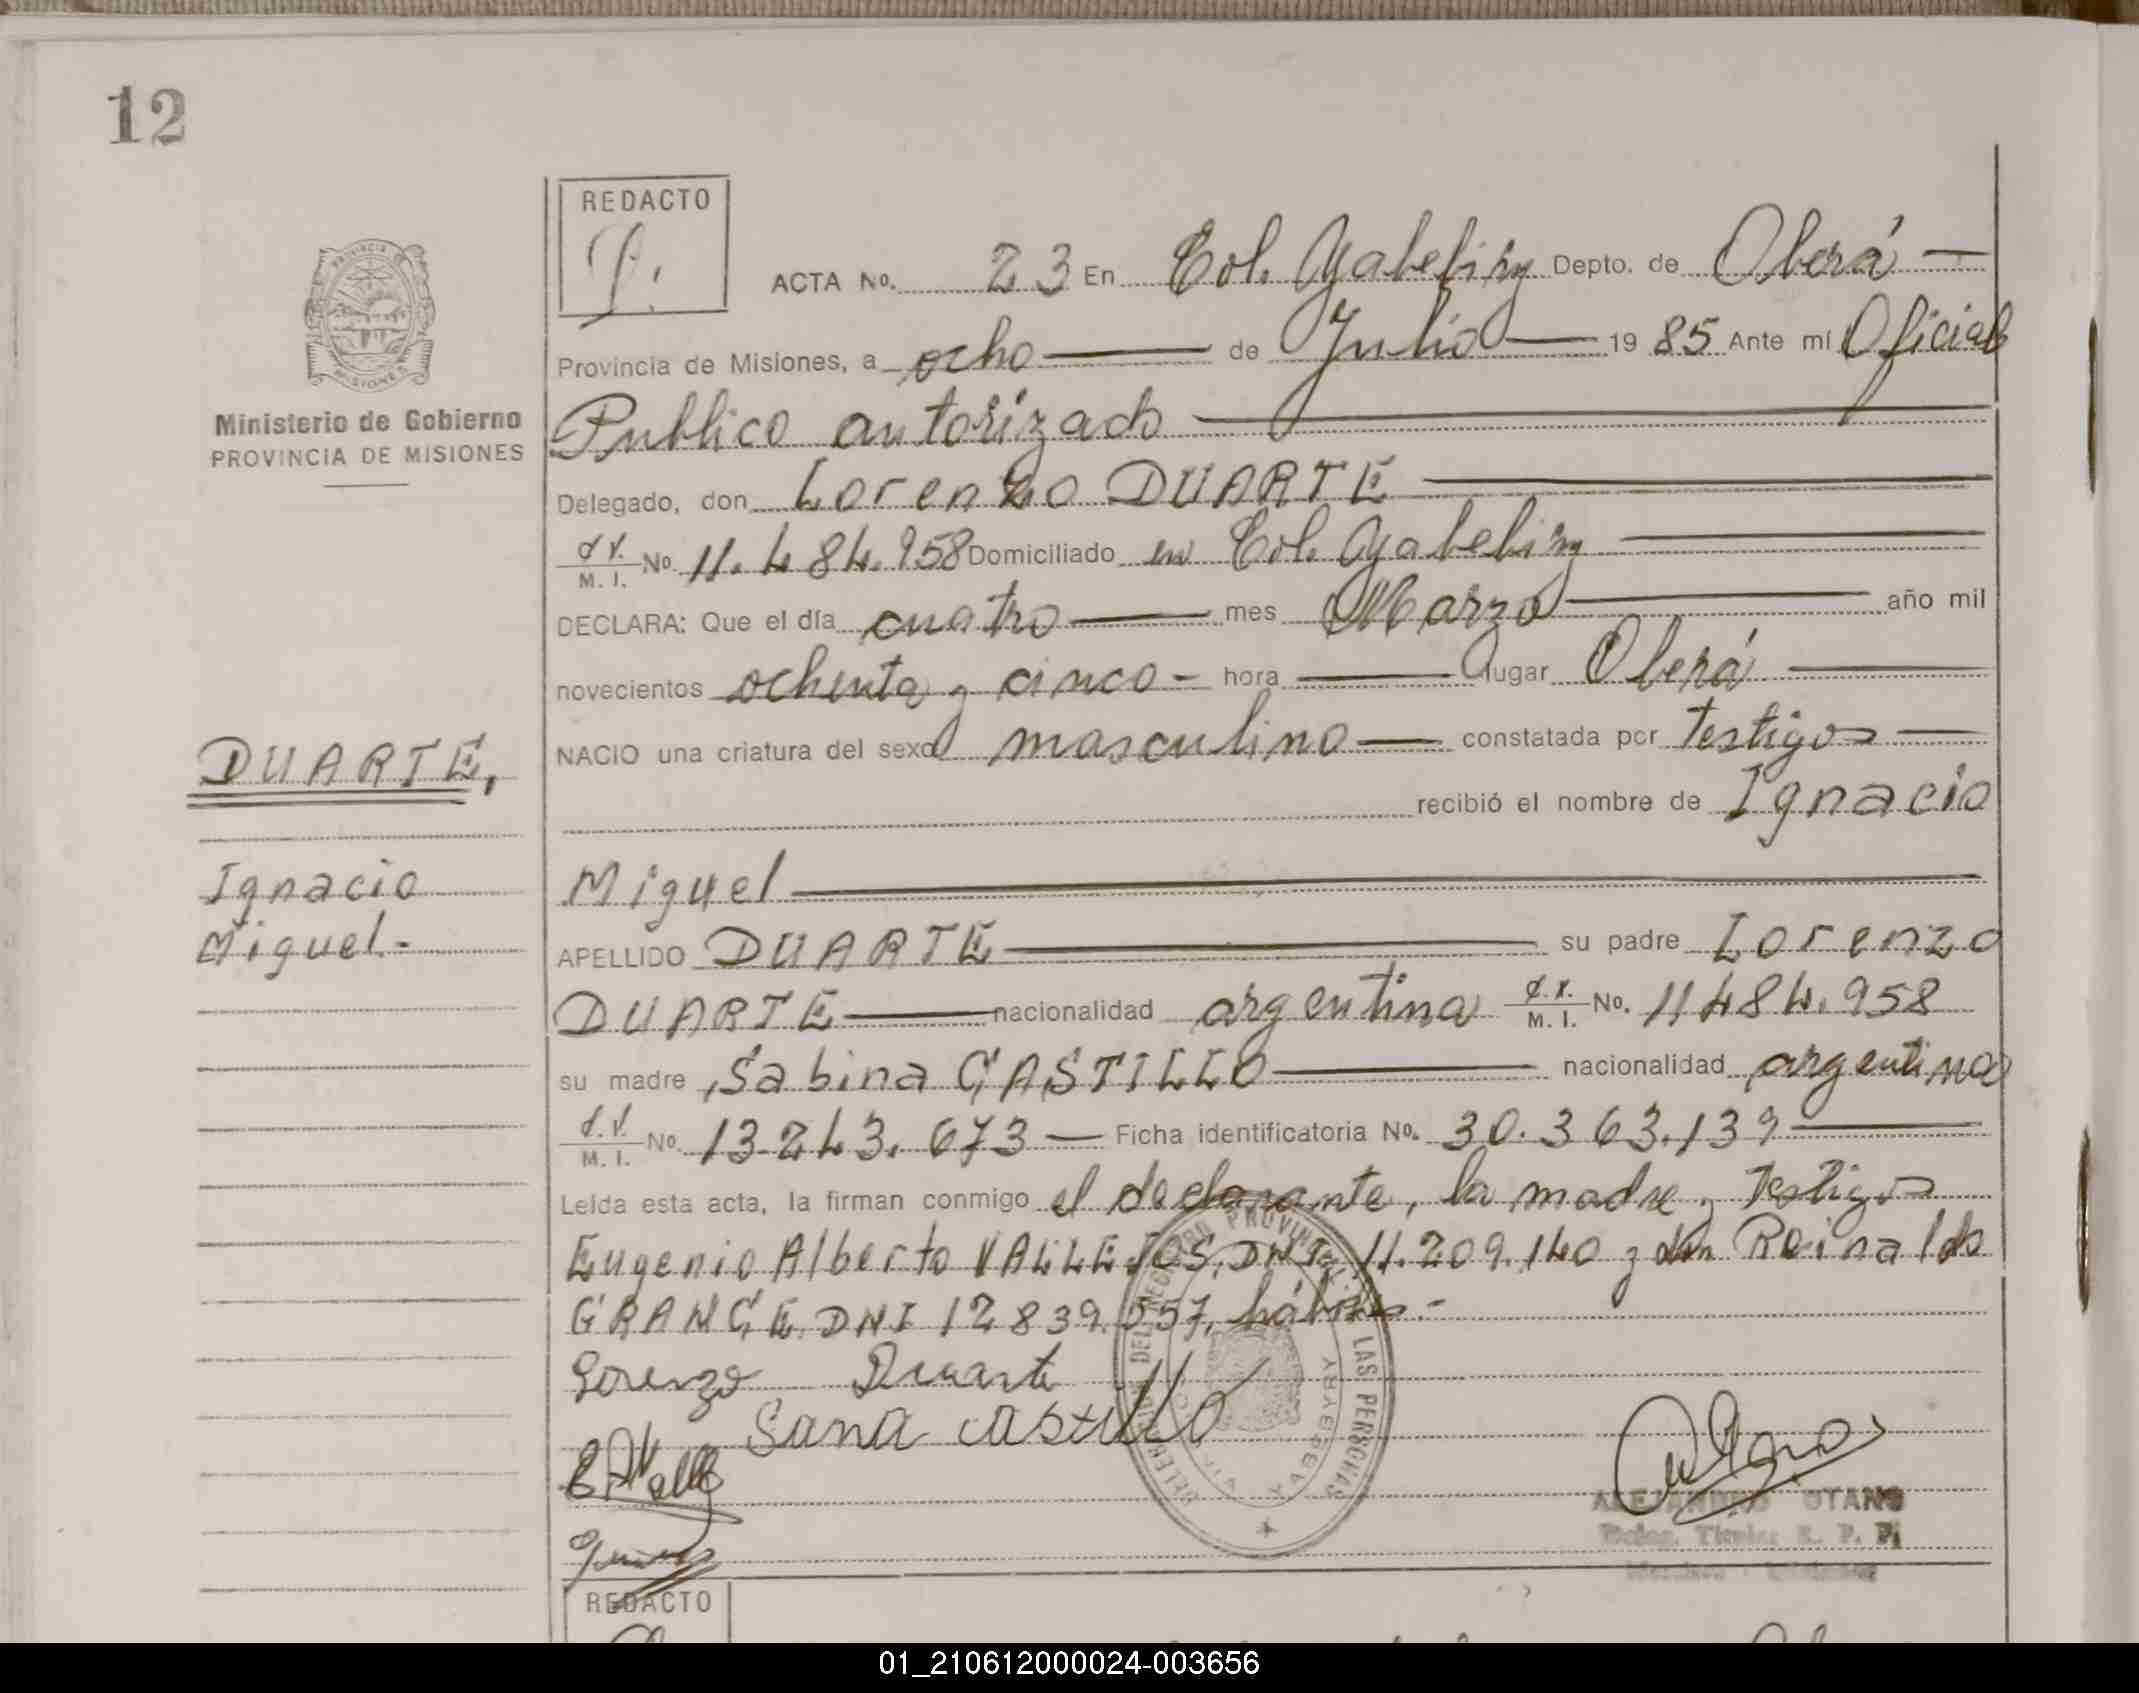 12
REDACTO
ACTA No. 23 En Col. Yabebiry Depto. de Oberá —
Provincia de Misiones, a ocho — de Julio — 19 85 Ante mí Oficial
Publico autorizado —
Ministerio de Gobierno
PROVINCIA DE MISIONES
Delegado, don Lorenzo DUARTE —
M. I. No. 11.484.958 Domiciliado en Col. Yabebiry —
DECLARA: Que el día cuatro — mes Marzo — año mil
novecientos ochenta y cinco - hora — lugar Oberá —
NACIO una criatura del sexo masculino — constatada por testigos —
DUARTE,
recibió el nombre de Ignacio
Ignacio
Miguel —
Miguel.-
APELLIDO DUARTE — su padre Lorenzo
DUARTE — nacionalidad argentina M. I. No. 11484.958
su madre Sabina CASTILLO — nacionalidad argentina
M. I. No. 13.243.673 — Ficha identificatoria No. 30.363.139 —
Leída esta acta, la firman conmigo el declarante, la madre y testigos
Eugenio Alberto VALLEJOS, DNI. 11.209.140 y don Reinaldo
GRANCE. DNI 12839.557, hábiles.-
Lorenzo Duarte
Sana castillo
ALEJANDRO OTANO
R. P. P.
LAS PERSONAS
YABEBYRY
REDACTO
01_210612000024-003656